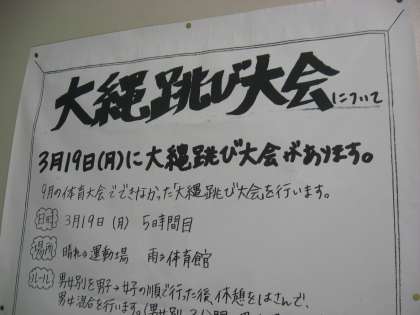 大縄跳び大会について
3月19日(月)に大縄跳び大会があります。
9月の体育大会でできなかった「大縄跳び大会」を行います。
日時 3月19日(月) 5時間目
場所 晴れ→運動場 雨→体育館
ルール 男女別を男子→女子の順で行った後、休憩をはさんで、
男女混合を行います。(男女別